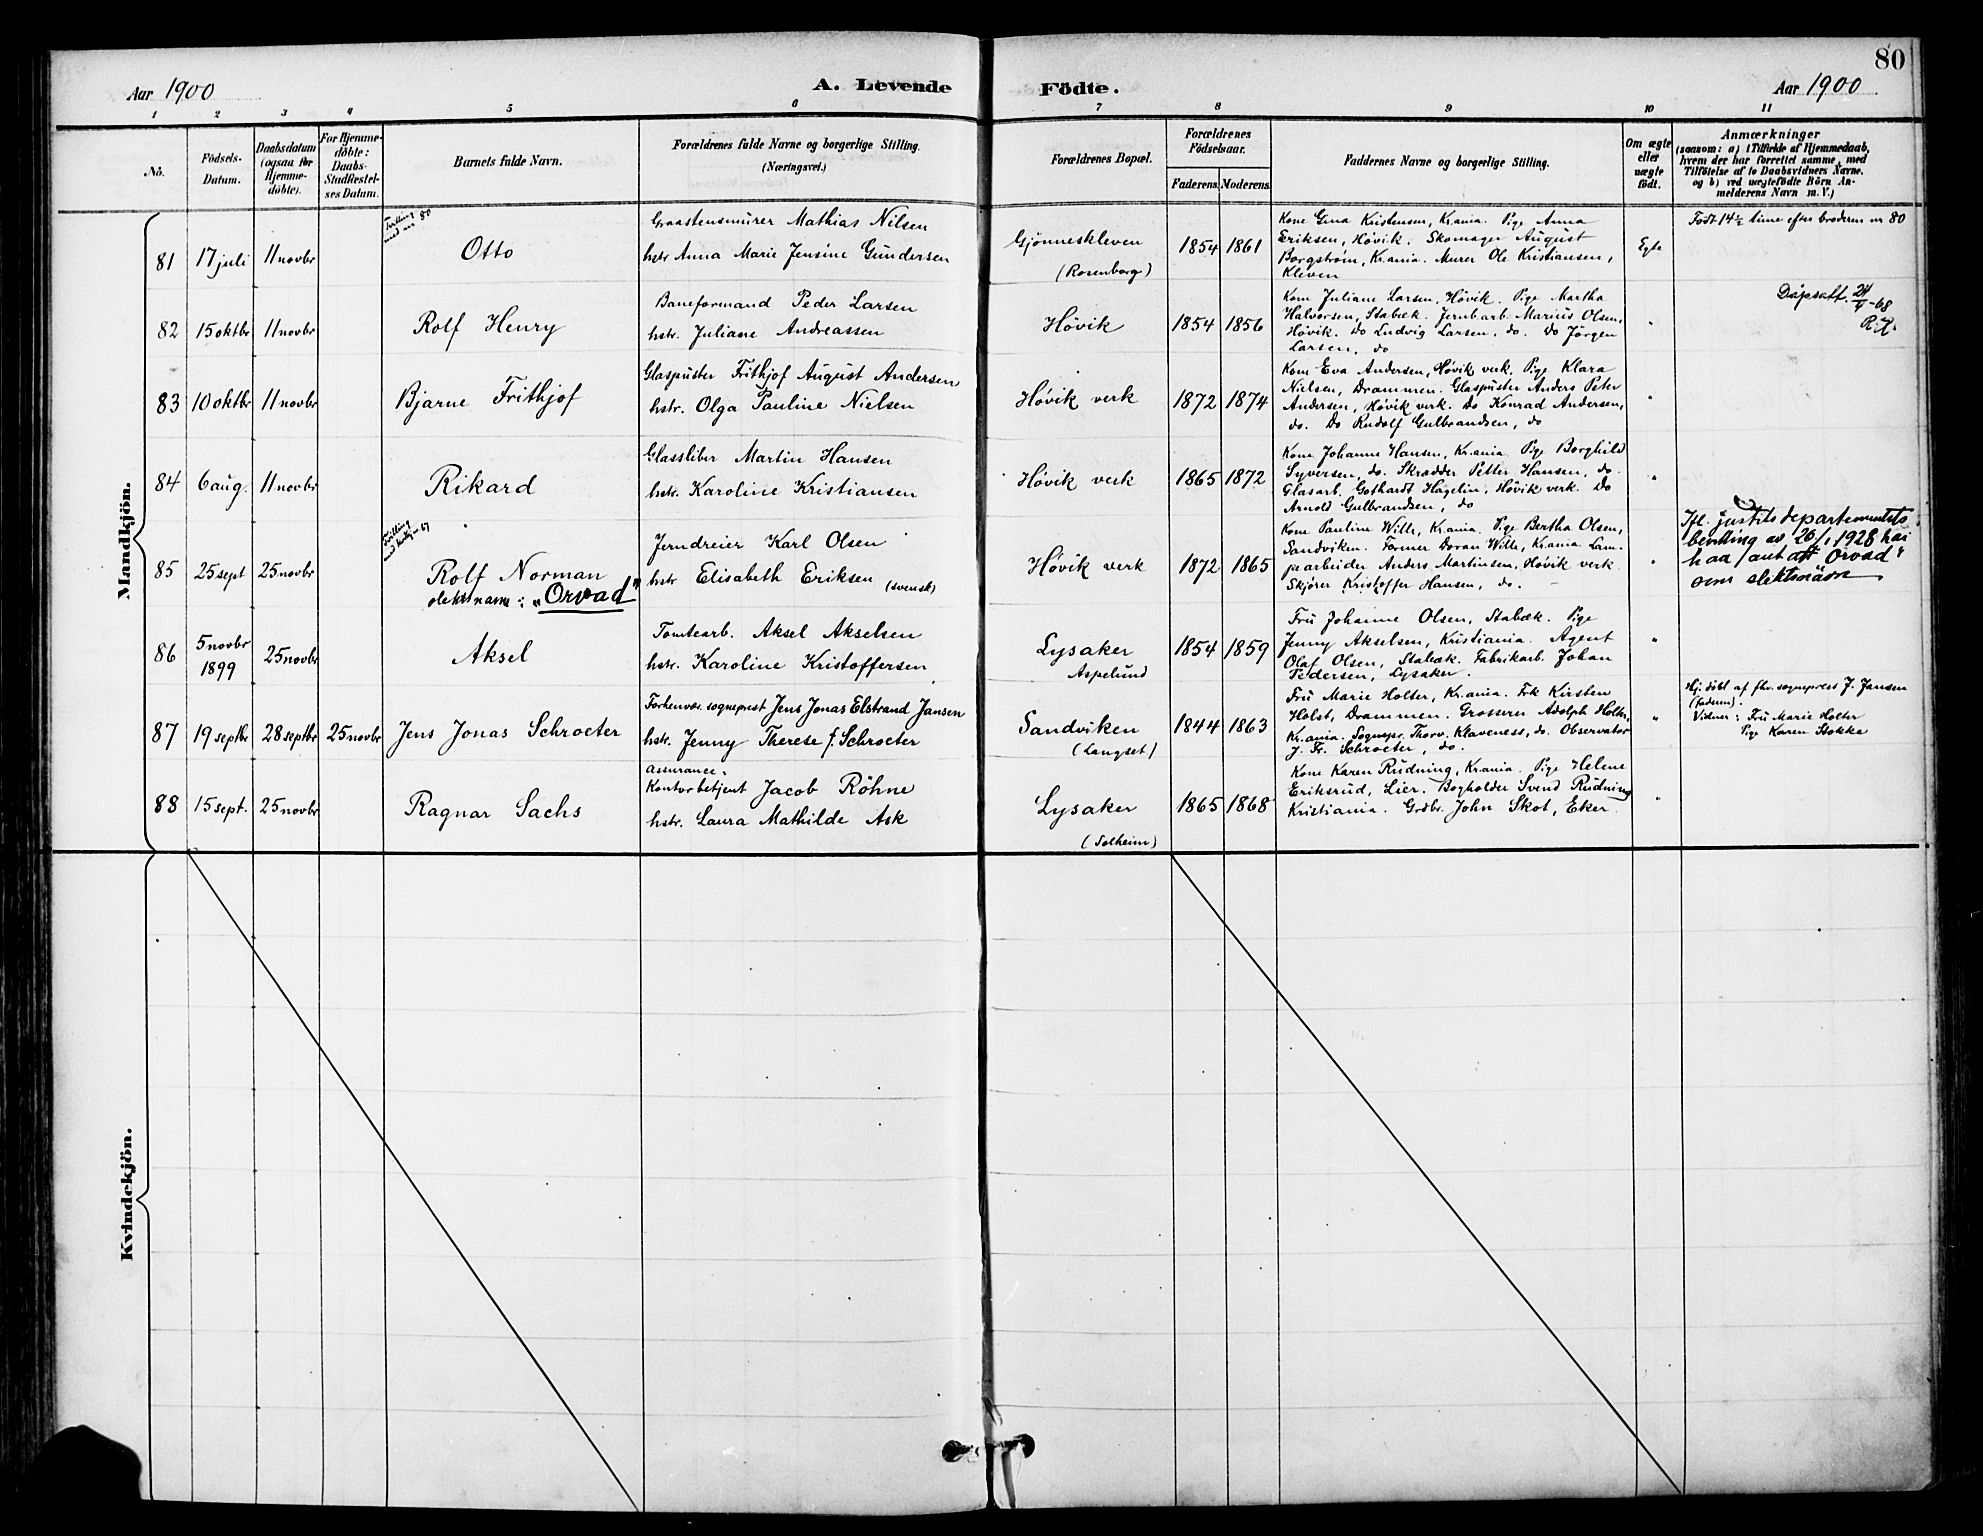 80
Aar 1900
A. Levende Födte.
Aar 1900
1 2 3 4 5 6 7 8 9 10 11
No.
Födsels-Datum.
Daabsdatum (ogsaa for Hjemmedöbte).
For Hjemmedöbte: Daabs-Stadfæstelses Datum.
Barnets fulde Navn.
Forældrenes fulde Navne og borgerlige Stilling.
(Næringsvei.)
Forældrenes Bopæl.
Forældrenes Födselsaar.
Faderens. Moderens.
Faddernes Navne og borgerlige Stilling.
Om ægte eller uægte födt.
Anmærkninger
(saasom: a) i Tilfælde af Hjemmedaab,
hvem der har forrettet samme, med
Tilföielse af to Daabsvidners Navne.
og b) ved uægtefödte Börn Anmelderens Navn m. V.)
Mandkjön.
81 17 juli 11 novbr
Tvilling med no 80
Otto
Graastensmurer Mathias Nilsen
hstr. Anna Marie Jensine Gundersen
Gjønneskleven
(Rosenborg)
1854 1861
Kone Gina Kristensen, Kr.ania. Pige Anna
Eriksen, Høvik. Skomager August
Borgstrøm, Kr.ania. Murer Ole Kristiansen,
Kleven
Egte
Født 14½ time efter broderen nr 80
82 15 oktbr 11 novbr
Rolf Henry
Baneformand Peder Larsen
hstr. Juliane Andreassen
Høvik
1854 1856
Kone Juliane Larsen, Høvik. Pige Martha
Halvorsen, Stabæk. Jernbarb. Marius Olsen,
Høvik. Do Ludvig Larsen, do. Do Jörgen
Larsen, do
"
Dåpsatt. 24/V-68
R.H.
83 10 oktbr 11 novbr
Bjarne Frithjof
Glaspuster Frithjof August Andersen
hstr. Olga Pauline Nielsen
Høvik verk
1872 1874
Kone Eva Andersen, Høvik verk. Pige Klara
Nielsen, Drammen. Glaspuster Anders Peter
Andersen, Høvik verk. Do Konrad Andersen,
do. Do Rudolf Gulbrandsen, do
"
84 6 aug. 11 novbr
Rikard
Glassliber Martin Hansen
hstr. Karoline Kristiansen
Høvik verk
1865 1872
Kone Johanne Hansen, Kr.ania. Pige Borghild
Syversen, do. Skrædder Petter Hansen, do.
Glasarb. Gothardt Hagelin, Høvik verk. Do
Arnold Gulbrandsen, do
"
85 25 sept 25 novbr
Rolf Norman
slektsnavn: "Orvad"
Jerndreier Karl Olsen
hstr Elisabeth Eriksen (svensk)
Høvik verk
1872 1865
Kone Pauline Wille, Kr.ania. Pige Bertha Olsen,
Sandviken. Former Doran Wille, Kr.ania. Lampearbeider Anders Martinsen, Høvik verk
Skjører Kristoffer Hansen, do.
"
Ifl. justisdepartementets
bevilling av 26/1 1928 har
haa antatt "Orvad"
som slektsnavn
86 5 novbr 1899 25 novbr
Aksel
Tomtearb. Aksel Akselsen
hstr. Karoline Kristoffersen
Lysaker
Aspelund
1854 1859
Fru Johanne Olsen, Stabæk. Pige
Jenny Akselsen, Kristiania. Agent
Olaf Olsen, Stabæk. Fabrikarb. Johan
Pedersen, Lysaker.
"
87 19 septbr 28 septbr 25 novbr
Jens Jonas Schroeter
Forhenvær. sogneprest Jens Jonas Elstrand Jansen
hstr. Jenny Therese f. Schroeter
Sandviken
(Langset)
1844 1863
Fru Marie Holter, Kr.ania. Frk Kirsten
Holst, Drammen. Grosserer Adolph Holter,
Kr.ania. Sognepr. Thorv. Klaveness, do. Observator
J. Fr. Schroeter, do.
"
Hj. døbt af fhv. sogneprest J. Jansen
(faderen).
Vidner: Fru Marie Holter
Pige Karen Stokke
88 15 sept. 25 novbr
Ragnar Sachs
Assurance-
Kontorbetjent Jacob Röhne
hstr. Laura Mathilde Ask
Lysaker
(Solheim)
1865 1868
Kone Karen Rudning, Kr.ania. Pige Helene
Eriksrud, Lier. Bogholder Svend Rudning
Kristiania. Grdbr. John Skot, Eker
"
Kvindekjön.